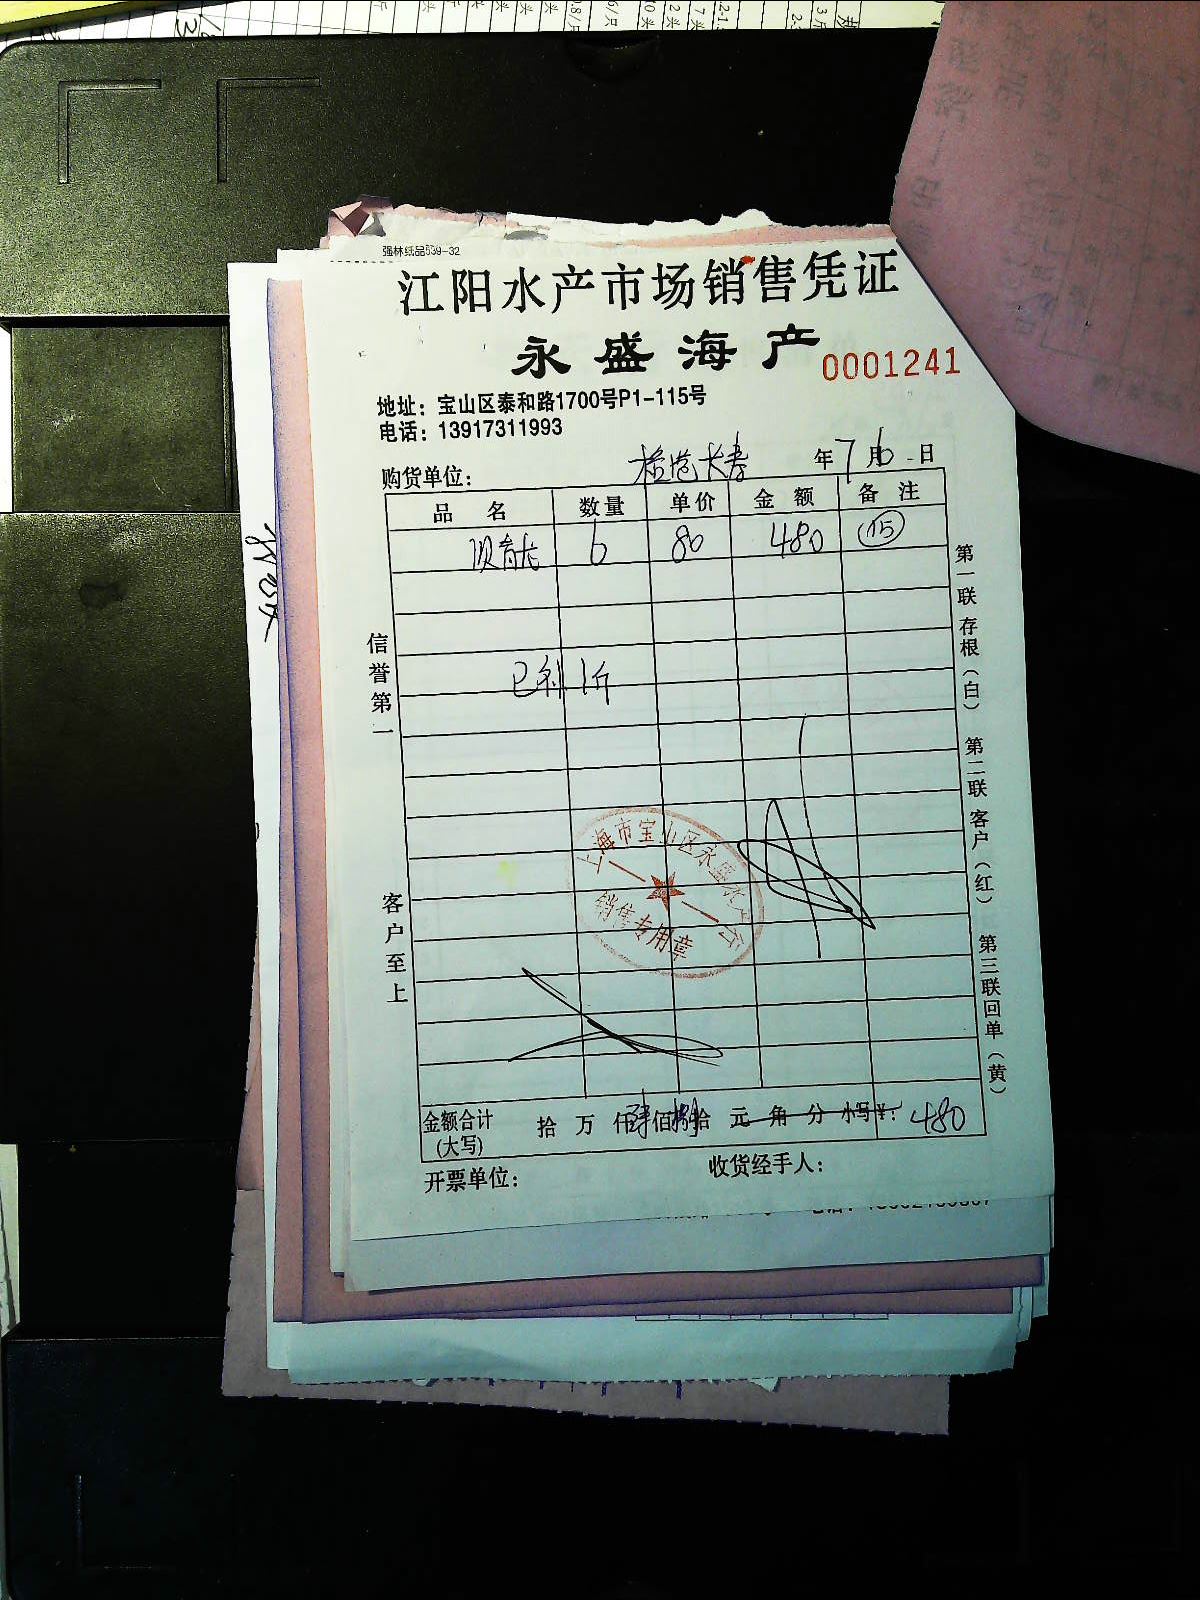 强林纸品559-32
江阳水产市场销售凭证
永盛海产 0001241
地址：宝山区泰和路1700号P1-115号
电话：13917311993
购货单位： 年7月6日
品名 数量 单价 金额 备注
6 80 480 15
已补1斤
信誉第一
客户至上
第一联存根（白）
第二联客户（红）
第三联回单（黄）
上海市宝山区永盛水产
销售专用章
金额合计（大写） 拾 万 仟肆佰捌拾 元 角 分 小写¥：480
开票单位： 收货经手人：